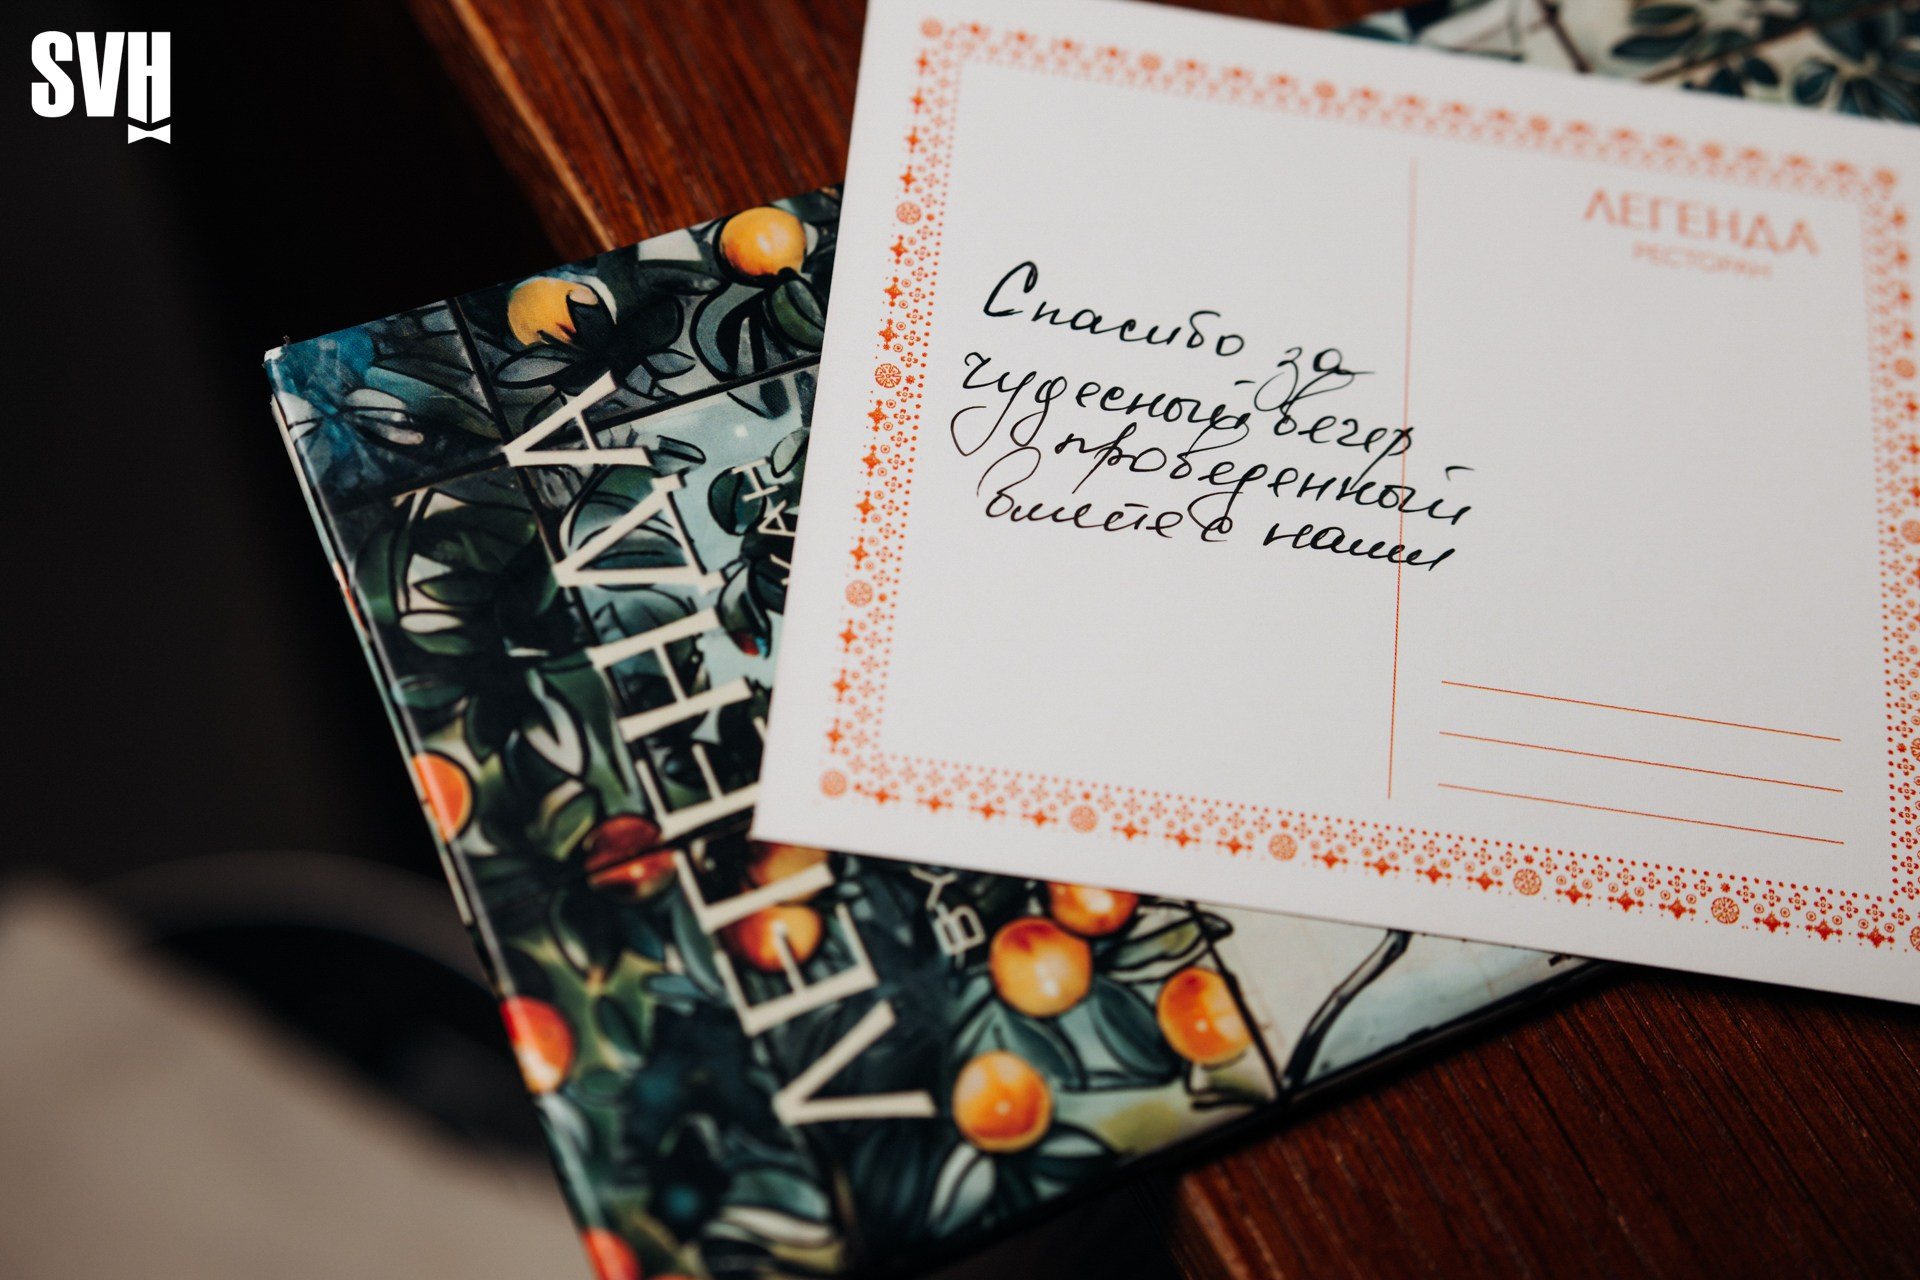 SVH
ЛЕГЕНДА
РЕСТОРАН
Спасибо за
чудесный вечер
проведенный
вместе с нами
ЛЕГЕНДА
BY